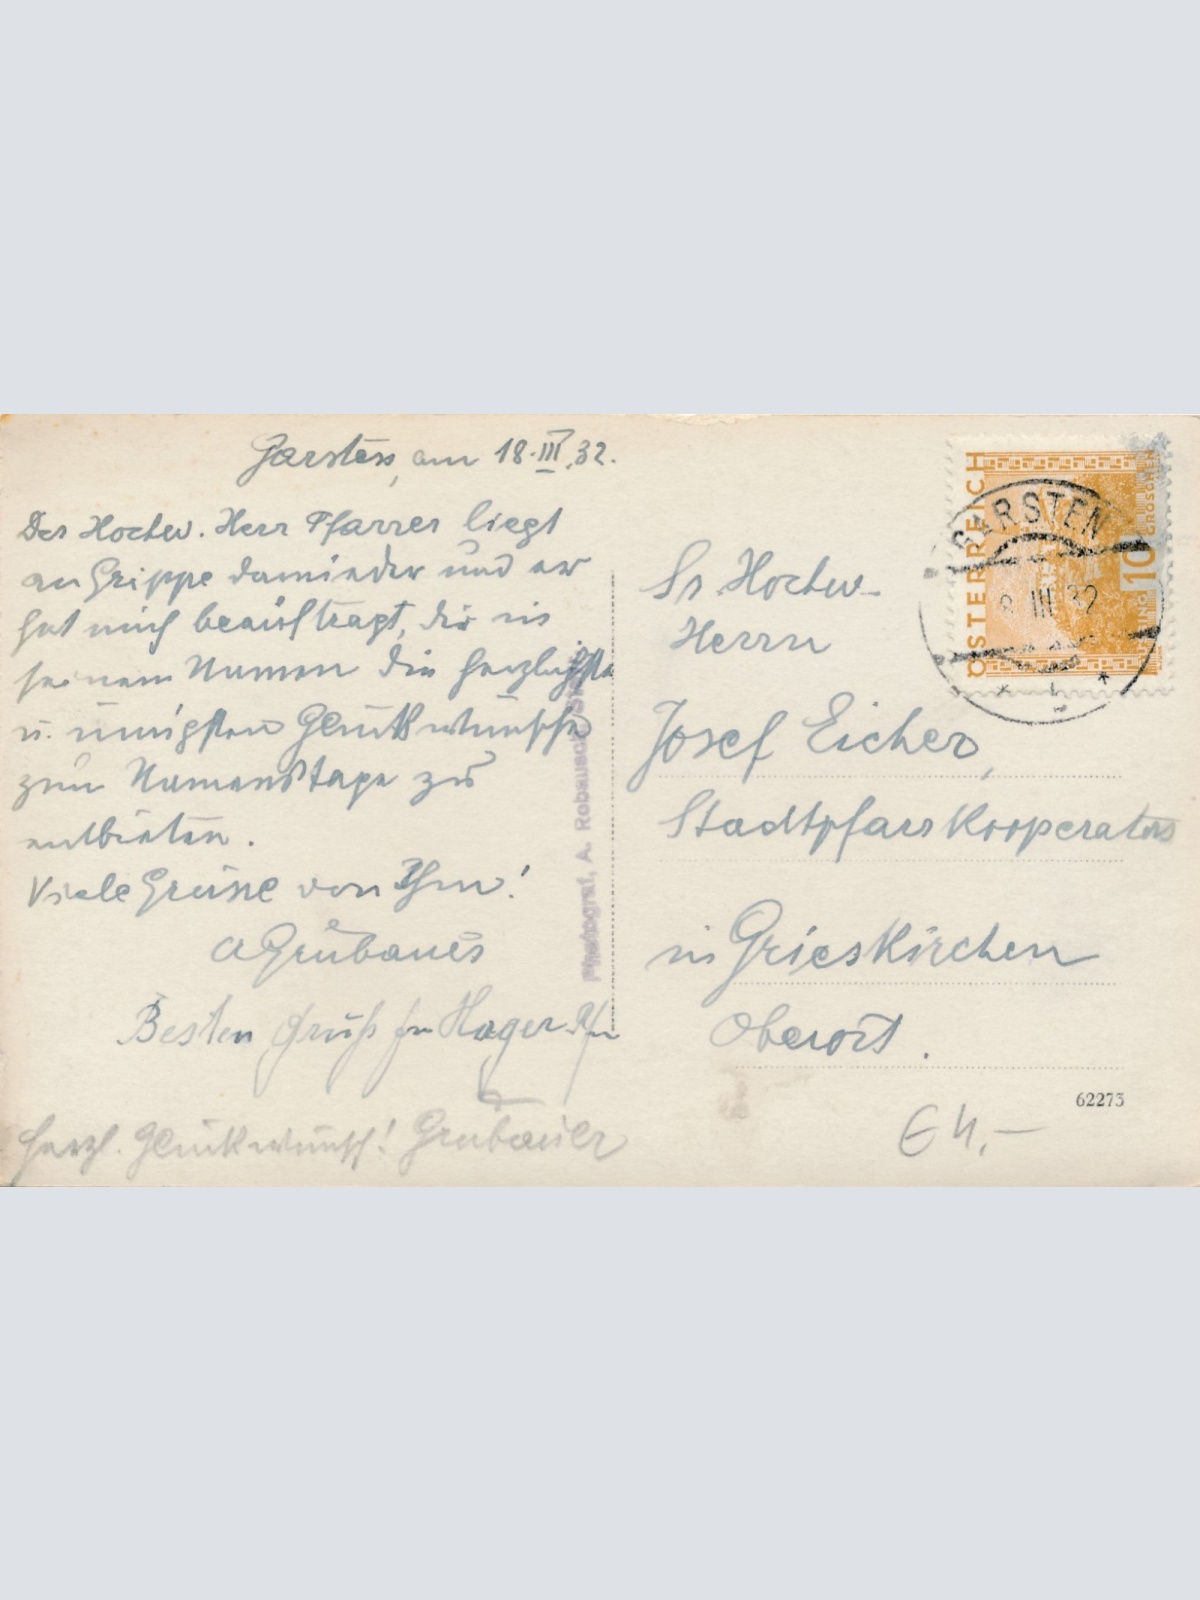 Garsten, am 18.III.32.
Der Hochw. Herr Pfarrer liegt
an Grippe darnieder und er
hat mich beauftragt, dir in
seinem Namen die herzlichsten
u. innigsten Glückwünsche
zum Namenstage zu
entbieten.
Viele Grüsse von Ihm!
Grubauer
Besten Gruß Hager
herzl. Glückwunsch! Grubauer
Photograf, A. Robausch
ÖSTERREICH
10 GROSCHEN
GARSTEN
III 32
Sr Hochw.
Herrn
Josef Eicher,
Stadtpfarrkooperator
in Grieskirchen
Oberöst.
62273
€ 4,-